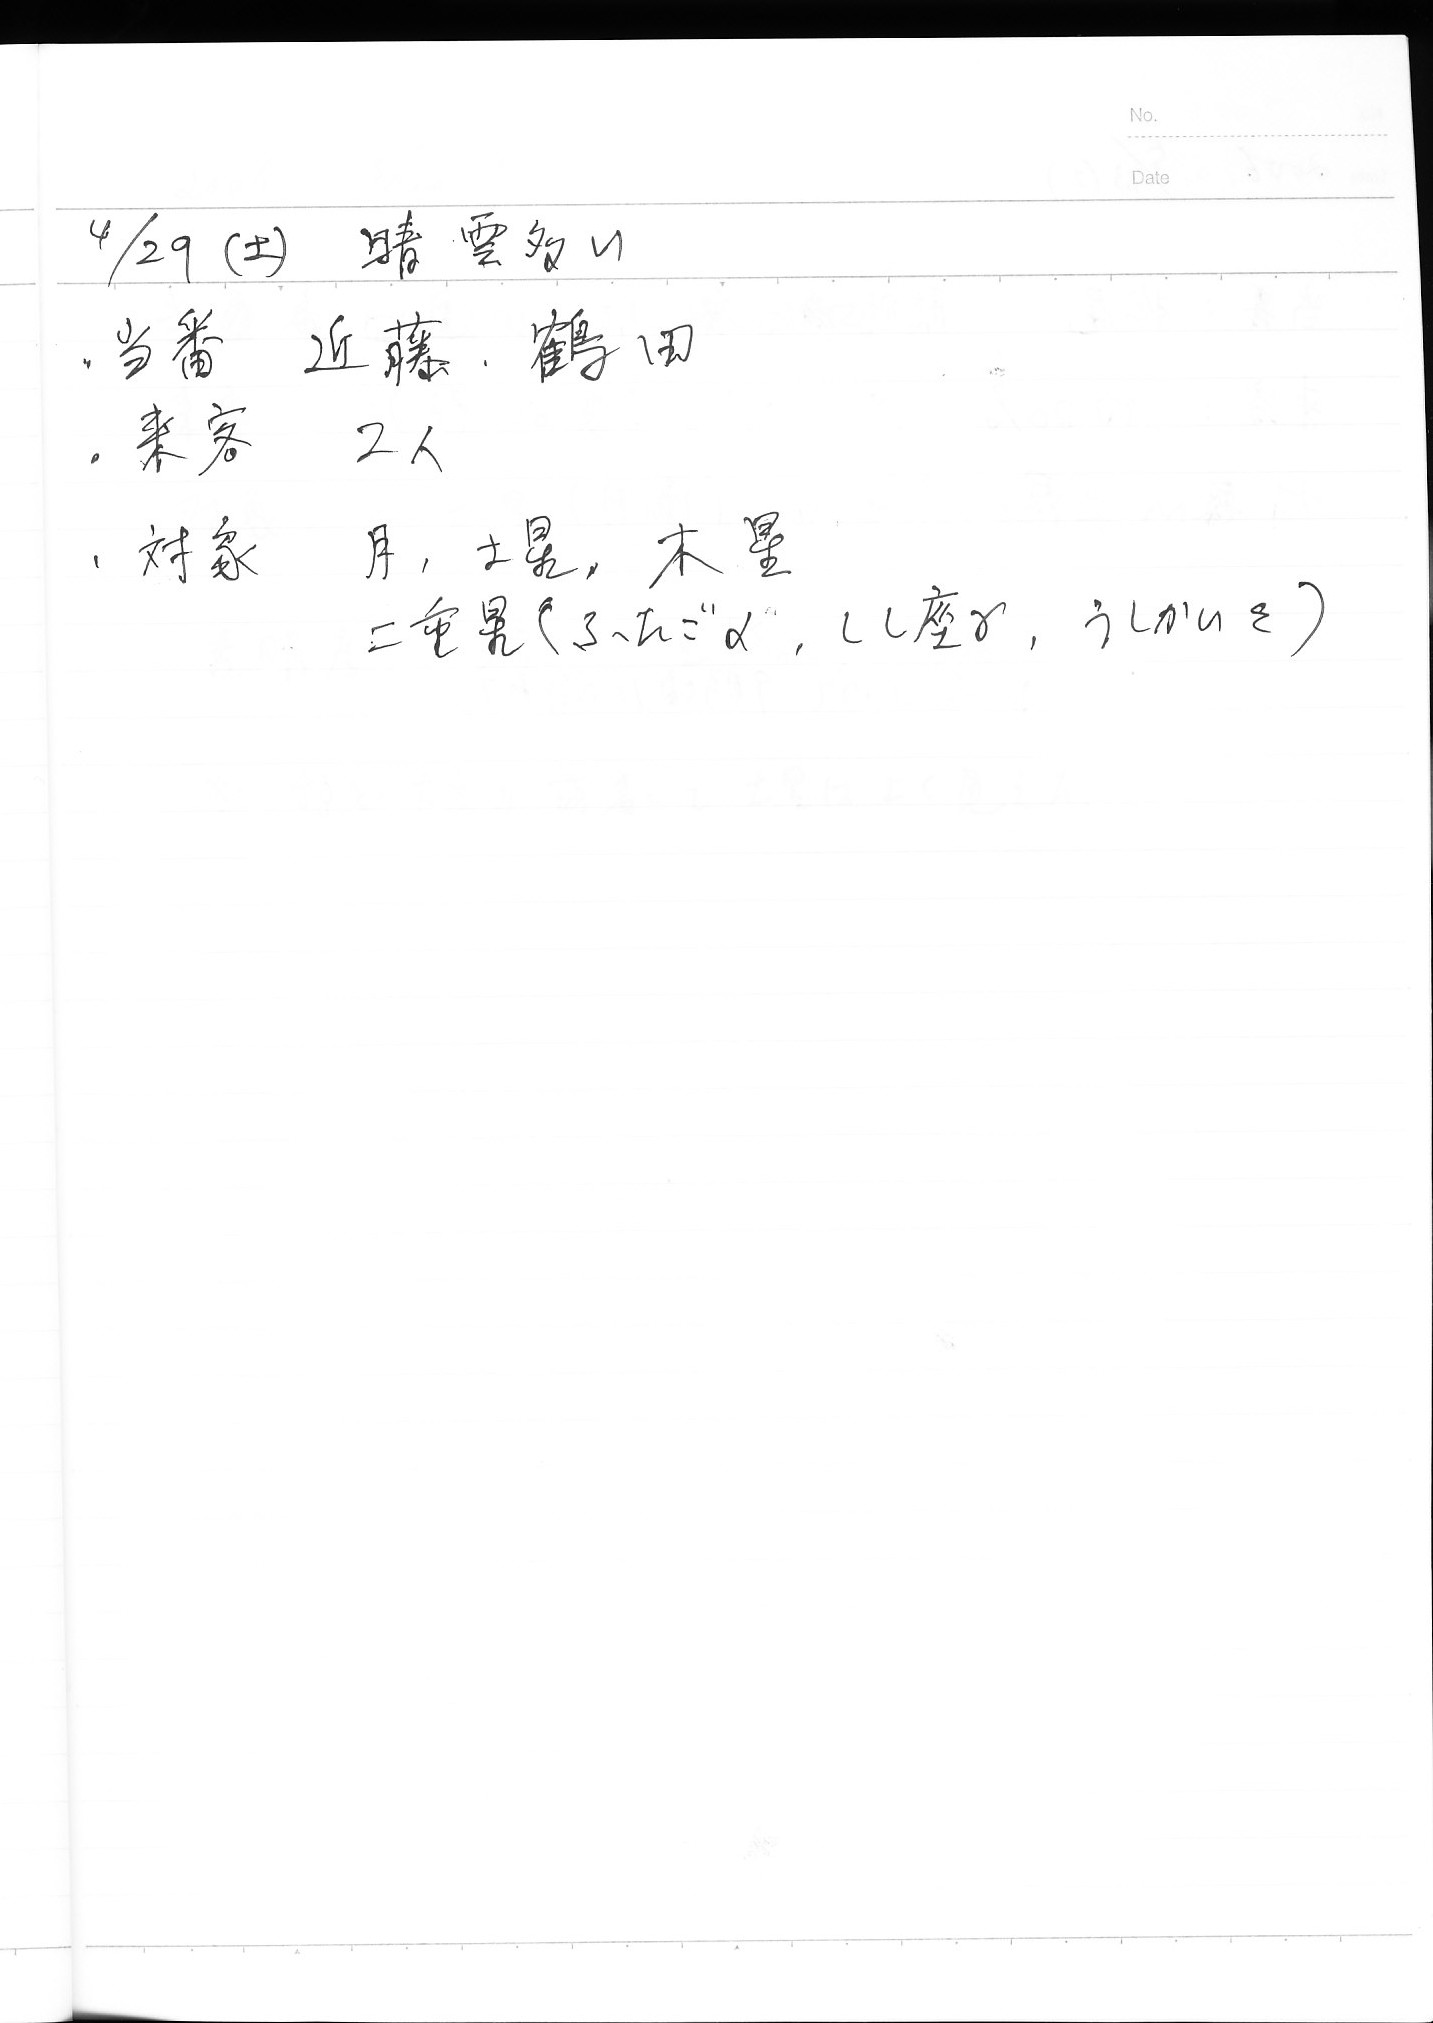 No.
Date
4/29(土) 晴 雲多い
・当番 近藤・鶴田
・来客 2人
・対象 月, 土星, 木星
二重星(ふたごα, しし座γ, うしかいε)